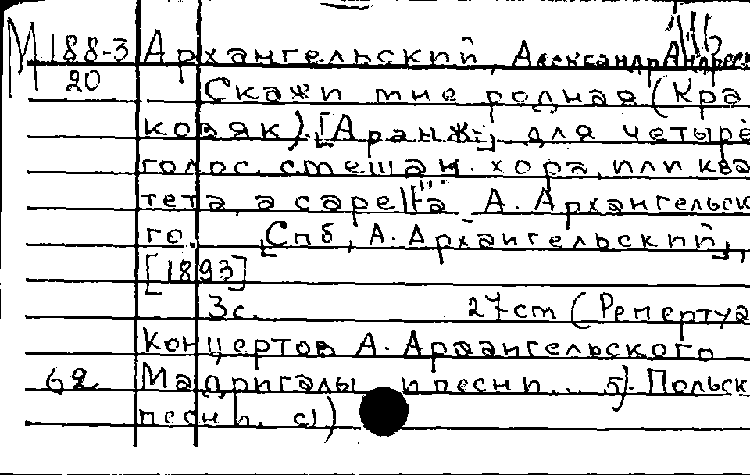 М 188-3 Архангельский, Александр Андрее
20 Скажи мне родная (Кра
ковяк). [Аранж.] для четырё
голос. смешан. хора, или ква
тета a capella А. Архангельск
го. [Спб, А. Архангельский],
[1893]
3с. 27cm (Репертуа
Концертов А. Архангельского
62 Мадригалы и песни... 5). Польск
песни. c))